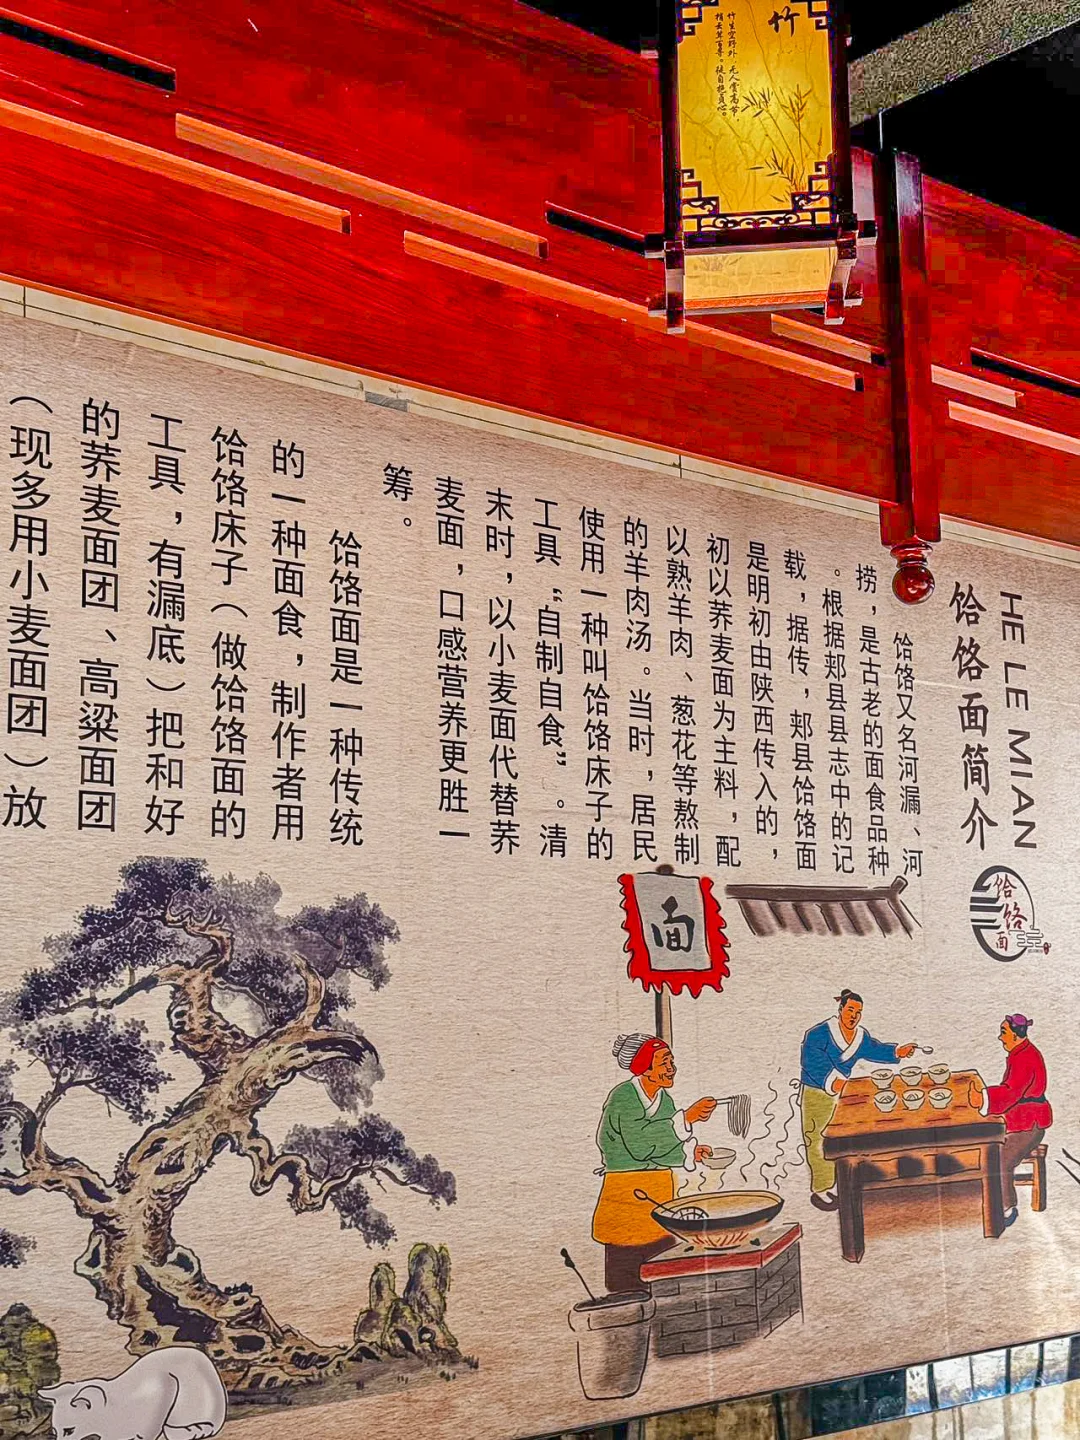 竹
竹生空野外，无人赏高节，
梢云耸百寻。徒自抱贞心。
HE LE MIAN
饸饹面简介
饸饹又名河漏、河
捞，是古老的面食品种
。根据郏县县志中的记
载，据传，郏县饸饹面
是明初由陕西传入的，
初以荞麦面为主料，配
以熟羊肉、葱花等熬制
的羊肉汤。当时，居民
使用一种叫饸饹床子的
工具“自制自食”。清
末时，以小麦面代替荞
麦面，口感营养更胜一
筹。
饸饹面是一种传统
的一种面食，制作者用
饸饹床子（做饸饹面的
工具，有漏底）把和好
的荞麦面团、高粱面团
（现多用小麦面团）放
饸饹面
面